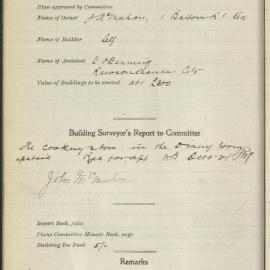 Plan approved by Committee
Name of Owner J McMahon, 1 Balfour Rd
Name of Builder Self
Name of Architect
Rawson Chambers City
Value of Buildings to be erected abt £300
Building Surveyor's Report to Committee
The cooking stove in the Dining room
John McMahon
Report Book, folio
Plans Committee Minute Book, page
Building Fee Paid 5/-
Remarks